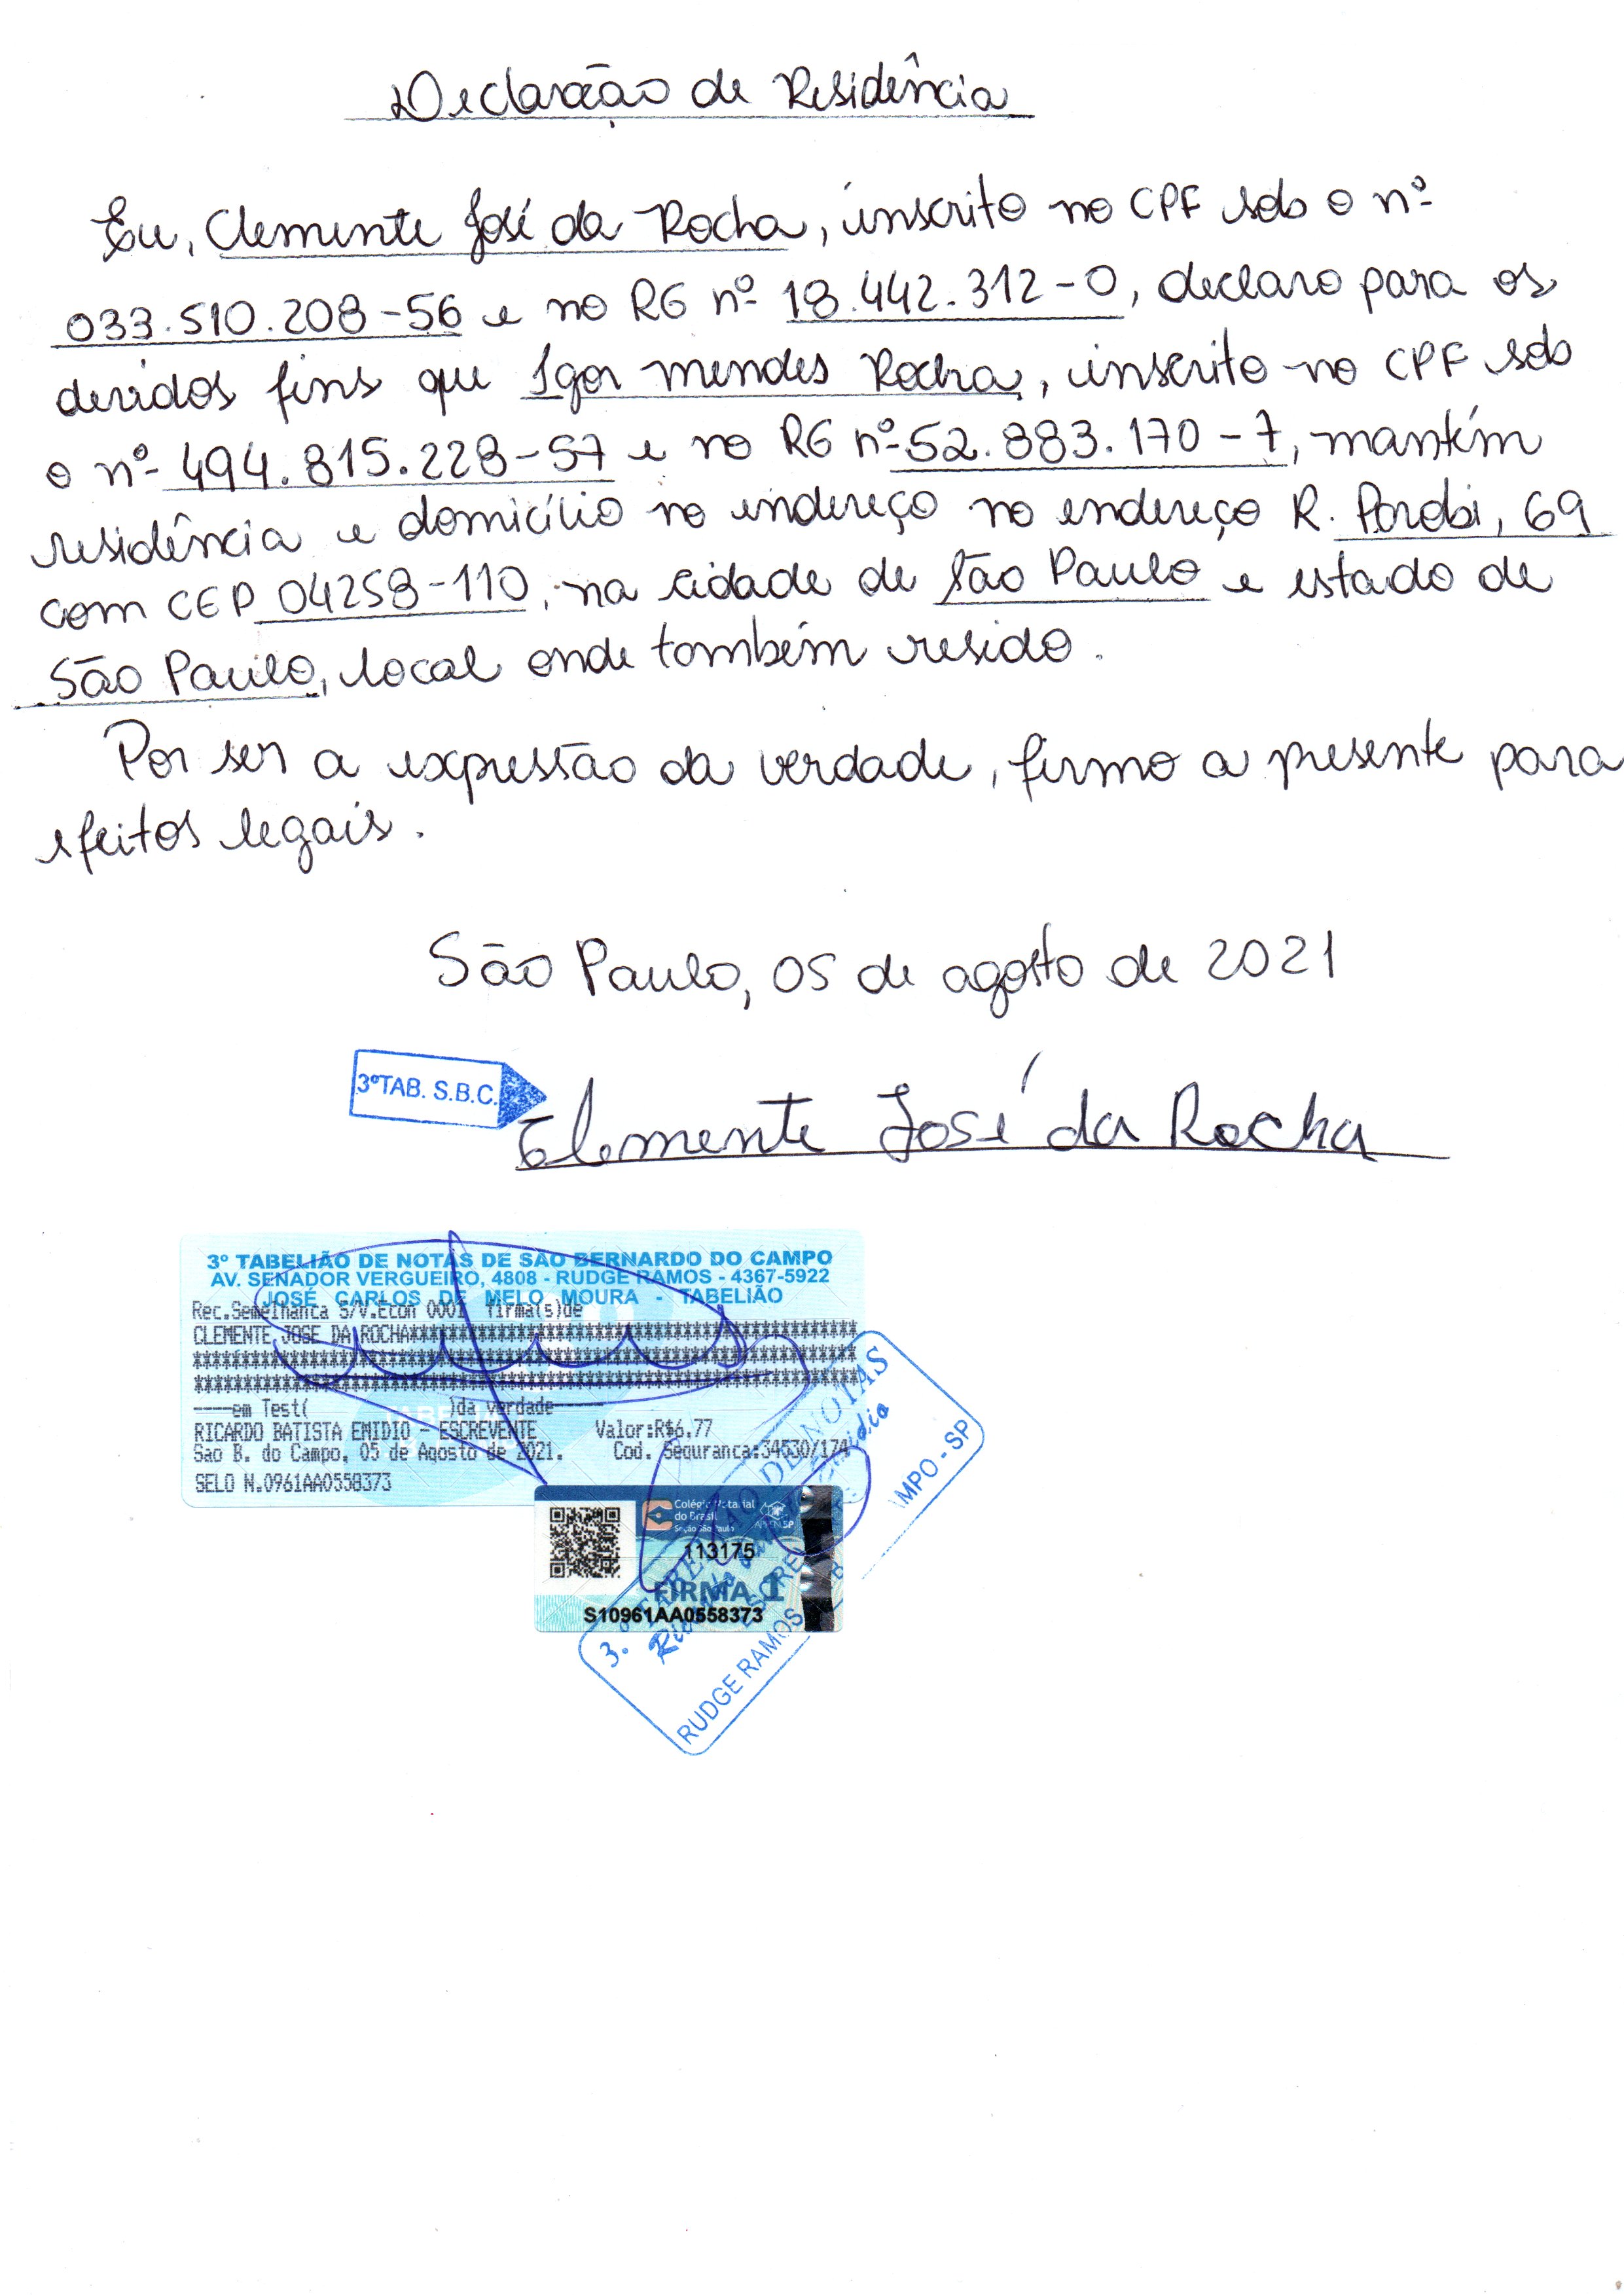 Declaração de Residência
Eu, Clemente José da Rocha, inscrito no CPF sob o nº
033.510.208-56 e no RG nº 18.442.312-0, declaro para os
devidos fins que Igor mendes Rocha, inscrito no CPF sob
o nº 494.815.228-57 e no RG nº 52.883.170-7, mantém
residência e domicílio no endereço no endereço R. Parobi, 69
com CEP 04258-110, na cidade de São Paulo e estado de
São Paulo, local onde também resido.
Por ser a expressão da verdade, firmo a presente para
efeitos legais.
São Paulo, 05 de agosto de 2021
3ºTAB. S.B.C.
Clemente José da Rocha
3º TABELIÃO DE NOTAS DE SÃO BERNARDO DO CAMPO
AV. SENADOR VERGUEIRO, 4808 - RUDGE RAMOS - 4367-5922
JOSÉ CARLOS DE MELO MOURA - TABELIÃO
Rec.Semelhanca S/V.Econ 0001 firma(s)de
CLEMENTE JOSE DA ROCHA
em Test( )da verdade
RICARDO BATISTA EMIDIO - ESCREVENTE Valor:R$6,77
Sao B. do Campo, 05 de Agosto de 2021. Cod. Seguranca:34530/174
SELO N.0961AA0558373
Colégio Notarial
do Brasil
Seção São Paulo
113175
FIRMA 1
S10961AA0558373
3.º TABELIÃO DE NOTAS
RUDGE RAMOS
MPO - SP